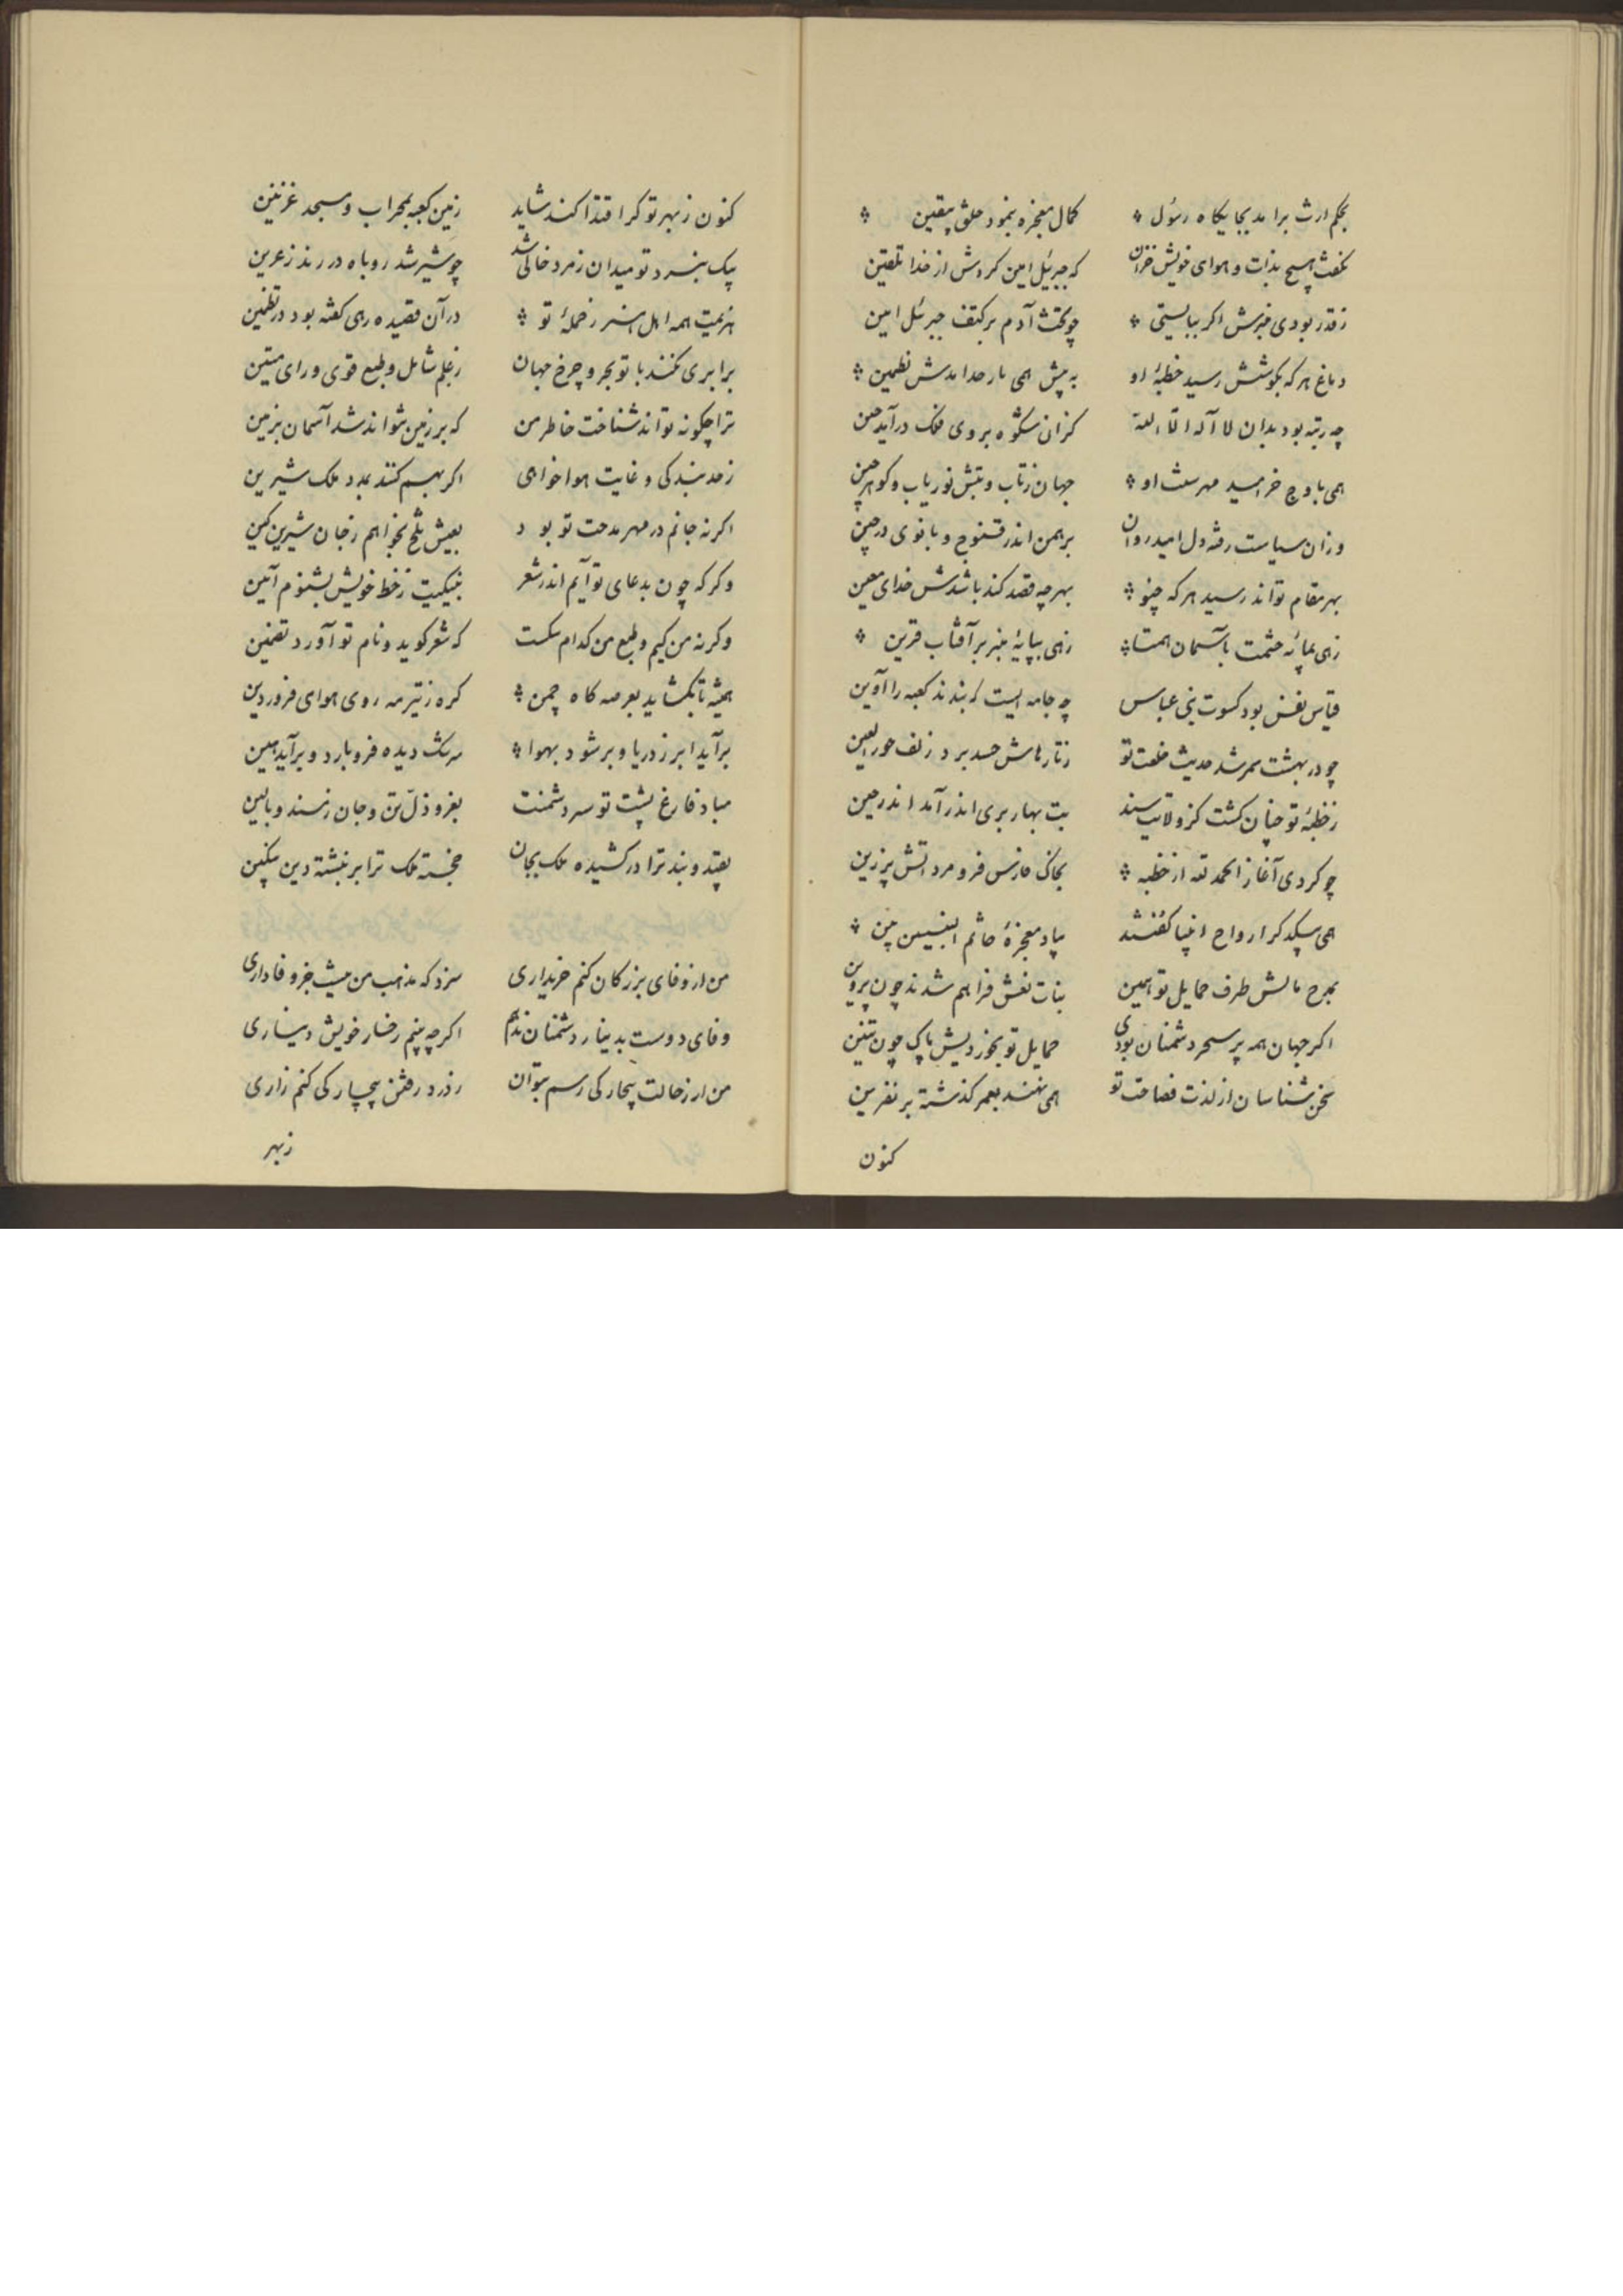 بحکم ارث برآمد بجایگاه رسول کمال معجزه بنمود خلق یقین
نگفت هیچ بذات و هوای خویش جز آن که جبرئیل امین کردش از خدا تلقین
ز قدر بودی منبرش اگر ببایستی چو تخت آدم بر کتف جبرئیل امین
دماغ هر که بگوشش رسید خطبهٔ او به پیش همی بار خدا
چه رتبه بود بدان لا اله الا الله کز آن شکوه بروی فلک درآید چین
همی باوج خرامید او جهان ز تاب و تبش نور یاب و گوهر چین
وزان سیاست رفته دل امید روان برهمن اندر قنوج و بانوی در چین
بهر مقام تواند رسید هر که چنو بهر چه قصد کند باشدش خدای معین
زهی بپایهٔ حشمت باسمان همتا زهی بپایهٔ منبر بر آفتاب قرین
قیاس نفس بود کسوت بنی عباس چه جامه ایست که بندند کعبه را آوین
چو در بهشت سمر شد حدیث خلعت تو ز تارهاش حسد برد زلف حورالعین
ز خطبهٔ تو چنان گشت کز ولایت سند بت بهاربری اندر آمد اندر حین
چو کردی آغاز الحمد لله از خطبه بخاک فارس فرو مرد آتش برزین
همی ارواح انبیا گفتند معجزهٔ خاتم النبیین بین
بچرخ مالش طرف حمایل تو همین بنات نعش فراهم شدند چون پروین
اگر جهان همه پر سحر دشمنان بودی حمایل تو بخوردیش پاک چون تنین
سخن شناسان از لذت فصاحت تو همی نهند بعمر گذشته بر نفرین
کنون
کنون ز بهر تو گر اقتدا کند شاید زمین کعبه بمحراب و مسجد غزنین
بیک نبرد تو میدان ز مرد خالی شد چو شیر شد روباه در رمد ز عرین
هزیمت همه اهل هنر ز حملهٔ تو در آن قصیده رهی گفته بود در تضمین
برابری نکنند با تو بحر و چرخ جهان ز علم شامل و طبع قوی و رای متین
ترا چگونه تواند شناخت خاطر من که بر زمین نتواند شد آسمان بزمین
ز حد بندگی و غایت هواخواهی اگر بهم کنند بدرد ملک شیرین
اگر نه جانم در مهر مدحت تو بود بعیش تلخ نخواهم ز جان شیرین کین
وگر که چون بدعای تو آیم اندر شعر ز خط خویش بشنوم آمین
وگر نه من کیم و طبع من کدام سگست که شعر گوید و نام تو آورد تضمین
همیشه تا بگشاید بعرصه گاه چمن گره ز تیر مه روی هوای فروردین
برآید ابر ز دریا و بر شود بهوا سرشک دیده فرو بارد و برآید هین
مباد فارغ پشت تو سر دشمنت بعز و ذل تن و جان ز مسند و بالین
بقید و بند ترا در کشیده ملک بجان خجسته ملک ترا بر نبشته دین بنگین
من از وفای بزرگان کنم خریداری سزد که مذهب من نیست جز وفاداری
وفای دوست بدینار دشمنان ندهم اگر چه بینم رخسار خویش دیناری
من ار ز حالت بیچارگی رسم بتوان ز درد رفتن بیچارگی کنم زاری
زبهر